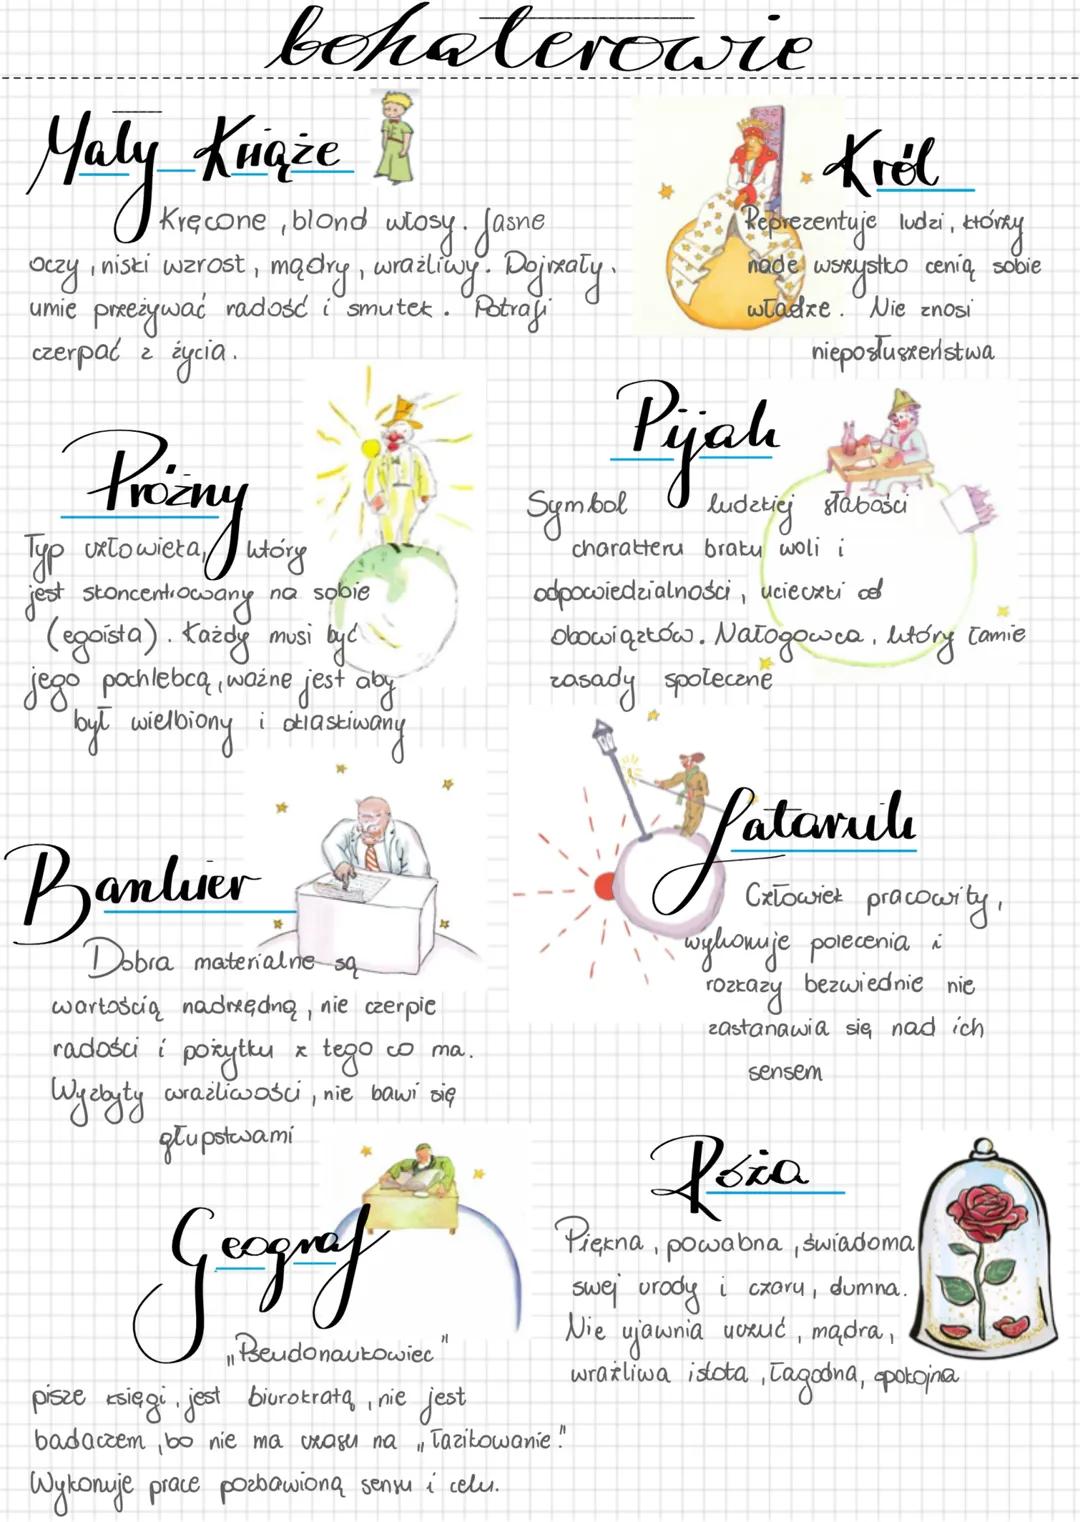 bohaterowie
Mały Książe
Kręcone, blond włosy. Jasne
oczy, niski wzrost, mądry, wrażliwy. Dojrzały,
umie przeżywać radość i smutek. Potrafi
czerpać z życia.
Król
Reprezentuje ludzi, którzy
nade wszystko cenią sobie
władze. Nie znosi
nieposłuszeństwa
Próżny
Typ człowieka, który
jest skoncentrowany na sobie
(egoista). Każdy musi być
jego pochlebcą, ważne jest aby
był wielbiony i oklaskiwany
Pijak
Symbol ludzkiej słabości
charakteru braku woli i
odpowiedzialności, ucieczki od
obowiązków. Nałogowca, który łamie
zasady społeczne
Bankier
Dobra materialne są
wartością nadrzędną, nie czerpie
radości i pożytku z tego co ma.
Wyzbyty wrażliwości, nie bawi się
głupstwami
Latarnik
Człowiek pracowity,
wykonuje polecenia i
rozkazy bezwiednie nie
zastanawia się nad ich
sensem
Geograf
„Pseudonaukowiec"
pisze księgi, jest biurokratą, nie jest
badaczem, bo nie ma czasu na „łazikowanie."
Wykonuje prace pozbawioną sensu i celu.
Róża
Piękna, powabna, świadoma
swej urody i czaru, dumna.
Nie ujawnia uczuć, mądra,
wrażliwa istota, łagodna, spokojna